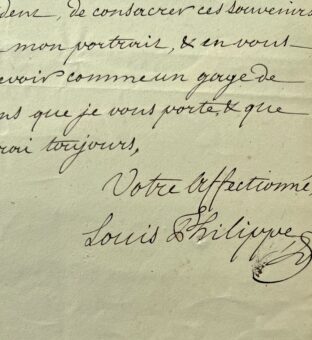 dent, de consacrer ces souvenirs
mon portrait, & en vous
evoir comme un gage de
ns que je vous porte, & que
rai toujours,
Votre affectionné,
Louis Philippe